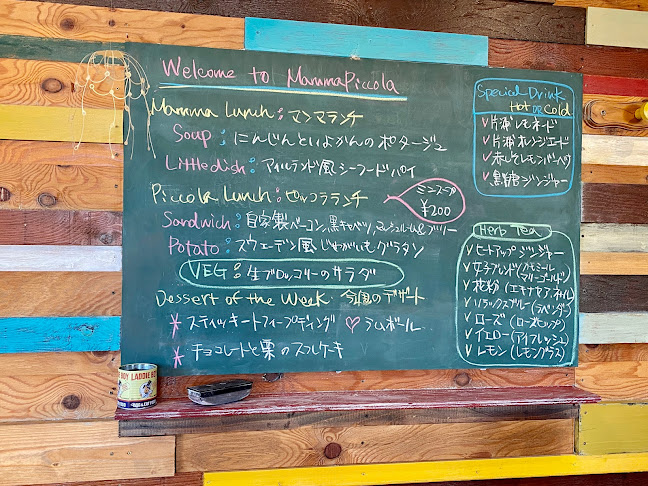 Welcome to MammaPiccola
Mamma Lunch : マンマランチ
Soup : にんじんといよかんのポタージュ
Little dish : アイルランド風シーフードパイ
Piccola Lunch : ピッコラランチ
ミニスープ
¥200
Sandwich : 自家製ベーコン、黒キャベツ、マッシュルーム&ブリー
Potato : スウェーデン風じゃがいもグラタン
VEG : 生ブロッコリーのサラダ
Dessert of the Week 今週のデザート
スティッキートフィープディング ♡ラムボール
チョコレートと栗の
Special Drink
Hot OR Cold
✓片浦レモネード
✓片浦オレンジエード
✓赤しそレモンバーベナ
✓黒糖ジンジャー
Herb Tea
✓ヒートアップジンジャー
✓女子ブレンド(カモミール マリーゴールド)
✓花粉(エキナセア、ネトル)
✓リラックスブルー(ラベンダー)
✓ローズ(ローズヒップ)
✓イエロー(アイフレッシュ)
✓レモン(レモングラス)
BOY LADDIE